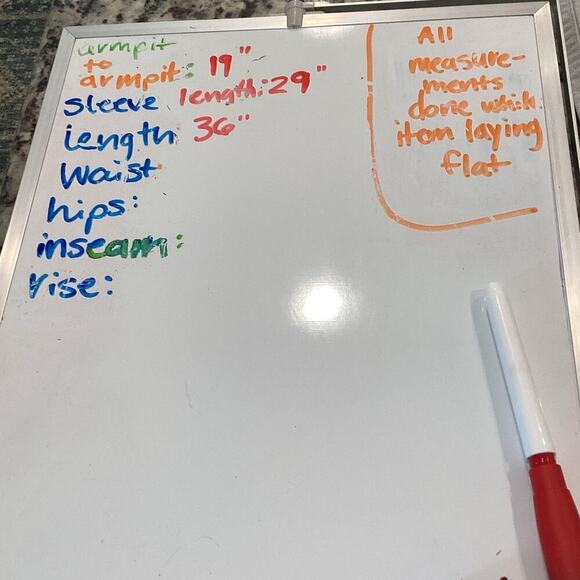 armpit
to
armpit: 19"
sleeve length: 29"
length 36"
Waist
hips:
inseam:
rise:
All
measure-
ments
done which
item laying
flat